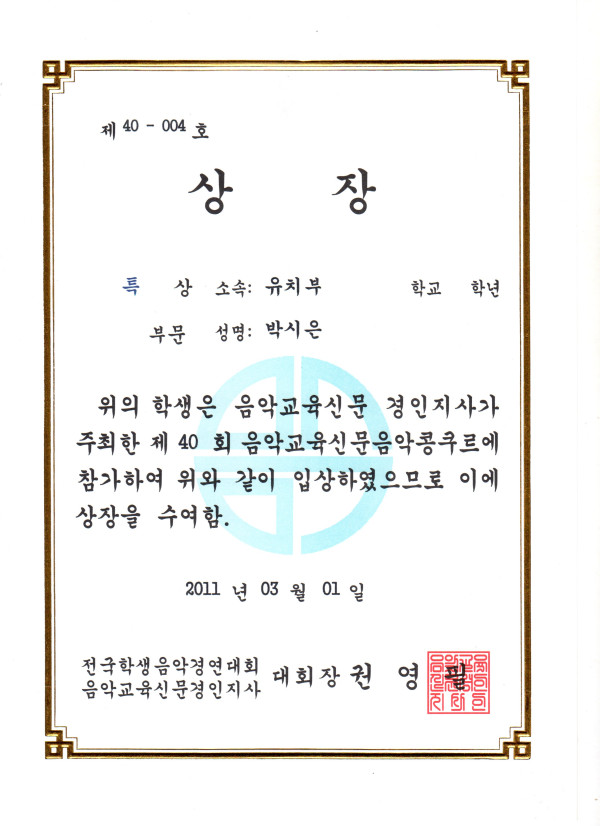 제 40 - 004 호
상 장
특 상 소속: 유치부 학교 학년
부문 성명: 박시은
위의 학생은 음악교육신문 경인지사가
주최한 제 40 회 음악교육신문음악콩쿠르에
참가하여 위와 같이 입상하였으므로 이에
상장을 수여함.
2011 년 03 월 01 일
전국학생음악경연대회
음악교육신문경인지사
대회장 권 영 필